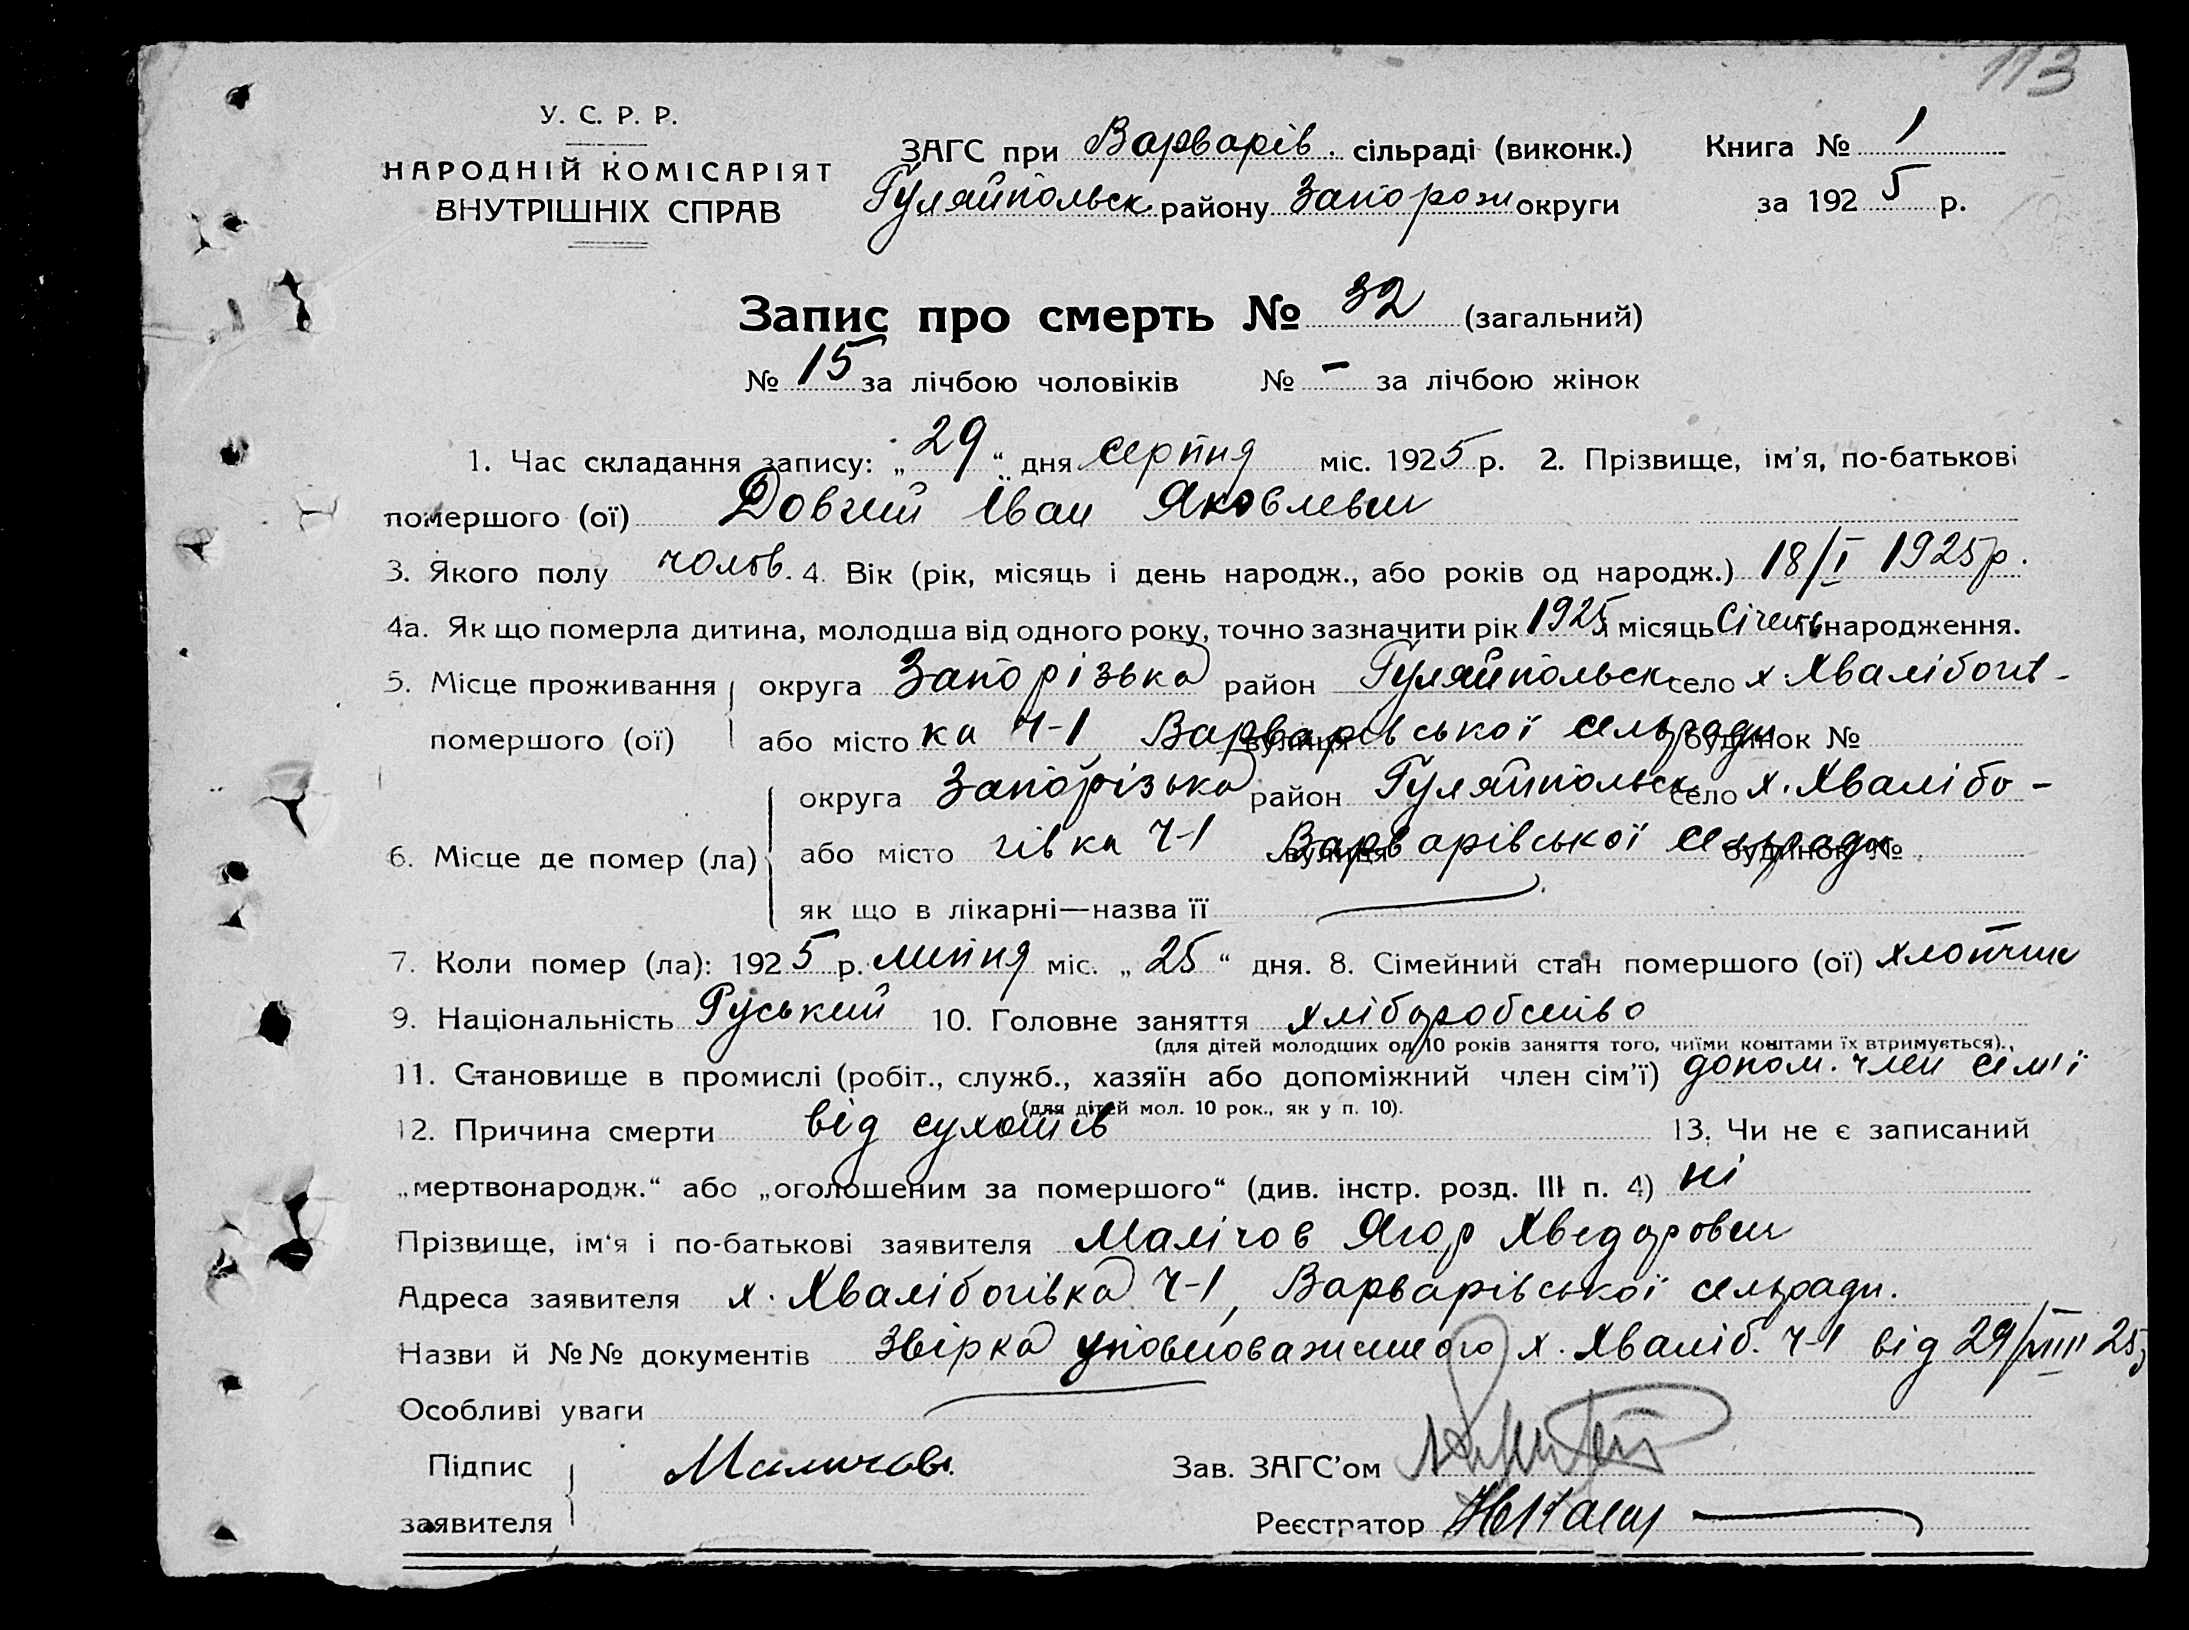 113
У. С. Р. Р.
НАРОДНІЙ КОМІСАРІЯТ
ВНУТРІШНІХ СПРАВ
ЗАГС при Варварів. сільраді (виконк.) Книга № 1
Гуляйпольськ. району Запорож округи за 1925 р.
Запис про смерть № 32 (загальний)
№ 15 за лічбою чоловіків № – за лічбою жінок
1. Час складання запису: „29“ дня серпня міс. 1925 р. 2. Прізвище, ім'я, по-батькові
помершого (ої) Довгий Іван Яковлевич
3. Якого полу чолов. 4. Вік (рік, місяць і день народж., або років од народж.) 18/I 1925 р.
4а. Як що померла дитина, молодша від одного року, точно зазначити рік 1925 і місяць Січень народження.
5. Місце проживання округа Запорізька район Гуляйпольськ село х. Хвалібогів-
помершого (ої) або місто ка Ч-1 Варварівської сельради вулиця будинок №
округа Запорізька район Гуляйпольськ село х. Хвалібо-
6. Місце де помер (ла) або місто гівка Ч-1 вулиця Варварівської сельради будинок №
як що в лікарні—назва її —
7. Коли помер (ла): 1925 р. липня міс. „25“ дня. 8. Сімейний стан помершого (ої) хлопчик
9. Національність Руський 10. Головне заняття хліборобство
(для дітей молодших од 10 років заняття того, чиїми коштами їх втримується).,
11. Становище в промислі (робіт., служб., хазяїн або допоміжний член сім'ї) допом. член сем'ї
(для дітей мол. 10 рок., як у п. 10).
12. Причина смерти від сухотів 13. Чи не є записаний
„мертвонародж.“ або „оголошеним за помершого“ (див. інстр. розд. III п. 4) ні
Прізвище, ім'я і по-батькові заявителя Малічов Ягор Хведорович
Адреса заявителя х. Хвалібогівка Ч-1, Варварівської сельради.
Назви й №№ документів Звірка уповноваженного х. Хваліб. Ч-1 від 29/VIII 25
Особливі уваги —
Підпис Маличов. Зав. ЗАГС'ом
заявителя Реєстратор